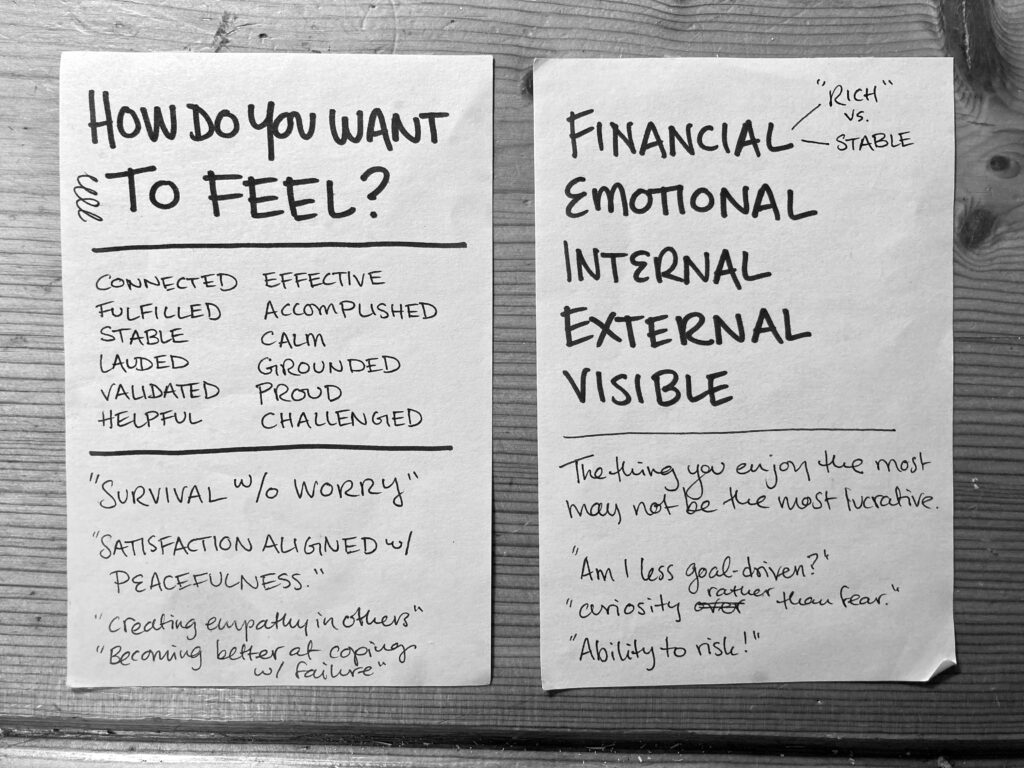 HOW DO YOU WANT
TO FEEL?
CONNECTED EFFECTIVE
FULFILLED ACCOMPLISHED
STABLE CALM
LAUDED GROUNDED
VALIDATED PROUD
HELPFUL CHALLENGED
"SURVIVAL w/o WORRY"
"SATISFACTION ALIGNED w/
PEACEFULNESS."
"creating empathy in others"
"Becoming better at coping
w/ failure"
"RICH"
vs.
FINANCIAL — STABLE
EMOTIONAL
INTERNAL
EXTERNAL
VISIBLE
The thing you enjoy the most
may not be the most lucrative.
"Am I less goal-driven?"
"curiosity over rather than fear."
"Ability to risk!"